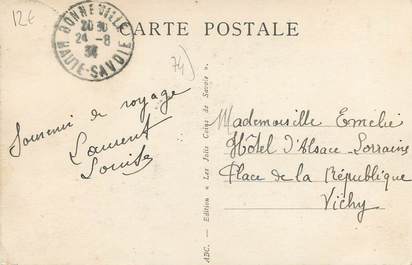 12€
CARTE POSTALE
BONNEVILLE
20 30
24 - 8
34
HAUTE-SAVOIE
74)
Souvenir de voyage
Laurent
Louise
Mademoiselle Emelie
Hôtel d'Alsace-Lorraine
Place de la République
Vichy
ABC. — Edition « Les Jolis Coins de Savoie ».